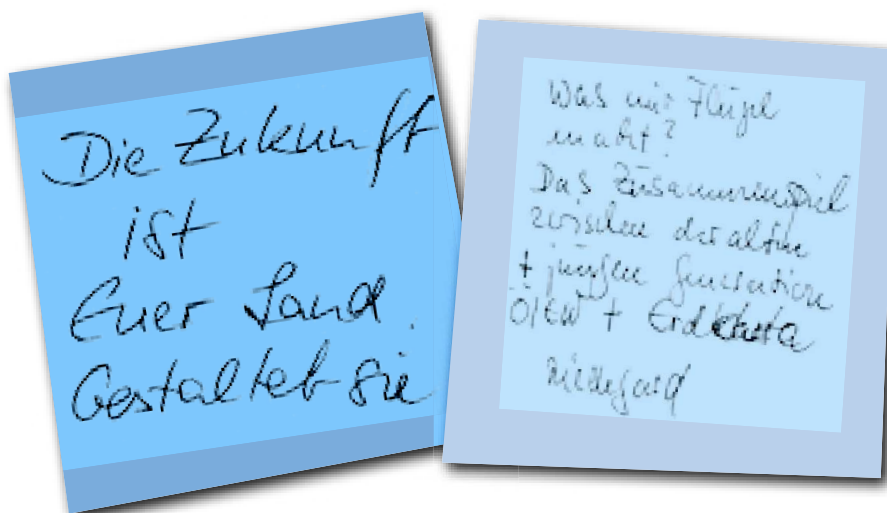 Die Zukunft
ist
Euer Land.
Gestaltet sie
Was mir Flügel
macht?
Das Zusammenspiel
zwischen der alten
+ jungen Generation
ÖIEW + Erdcharta
Hildegard